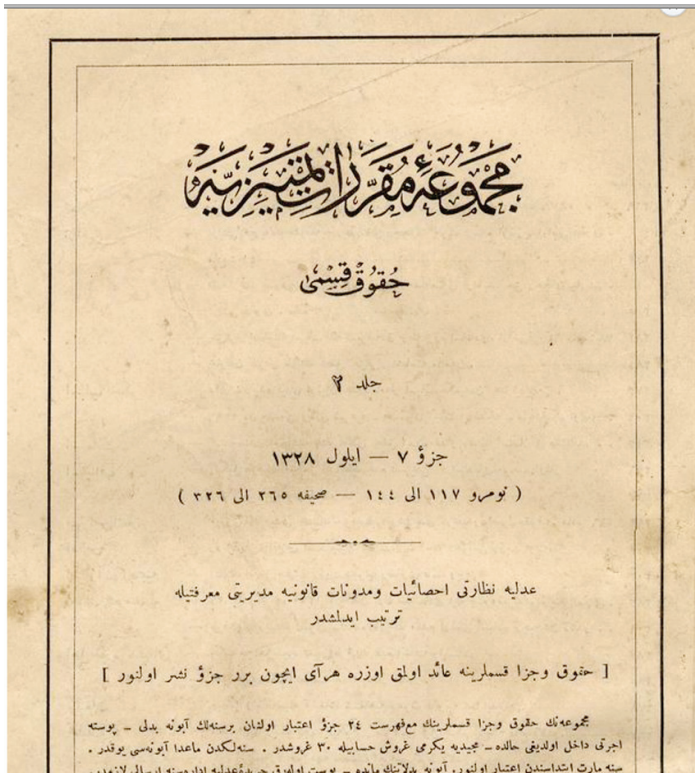 مجموعهٔ مقررات تمييزيه
حقوق قسمى
جلد ٢
جزؤ ٧ — ايلول ١٣٢٨
( نومرو ١١٧ الى ١٤٤ — صحيفه ٢٦٥ الى ٣٢٦ )
عدليه نظارتى احصائيات ومدونات قانونيه مديريتى معرفتيله
ترتيب ايدلشدر
[ حقوق وجزا قسملرينه عائد اولمق اوزره هرآى ايچون برر جزؤ نشر اولنور ]
مجموعه‌نك حقوق وجزا قسملرينك معفهرست ٢٤ جزؤ اعتبار اولنان برسنه‌لك آبونه بدلى – پوسته
اجرتى داخل اولديغى حالده – مجيديه يكرمى غروش حسابيله ٣٠ غروشدر . سنه‌لكدن ماعدا آبونه‌سى يوقدر .
سنه مارت ابتداسندن اعتبار اولنور. آبونه